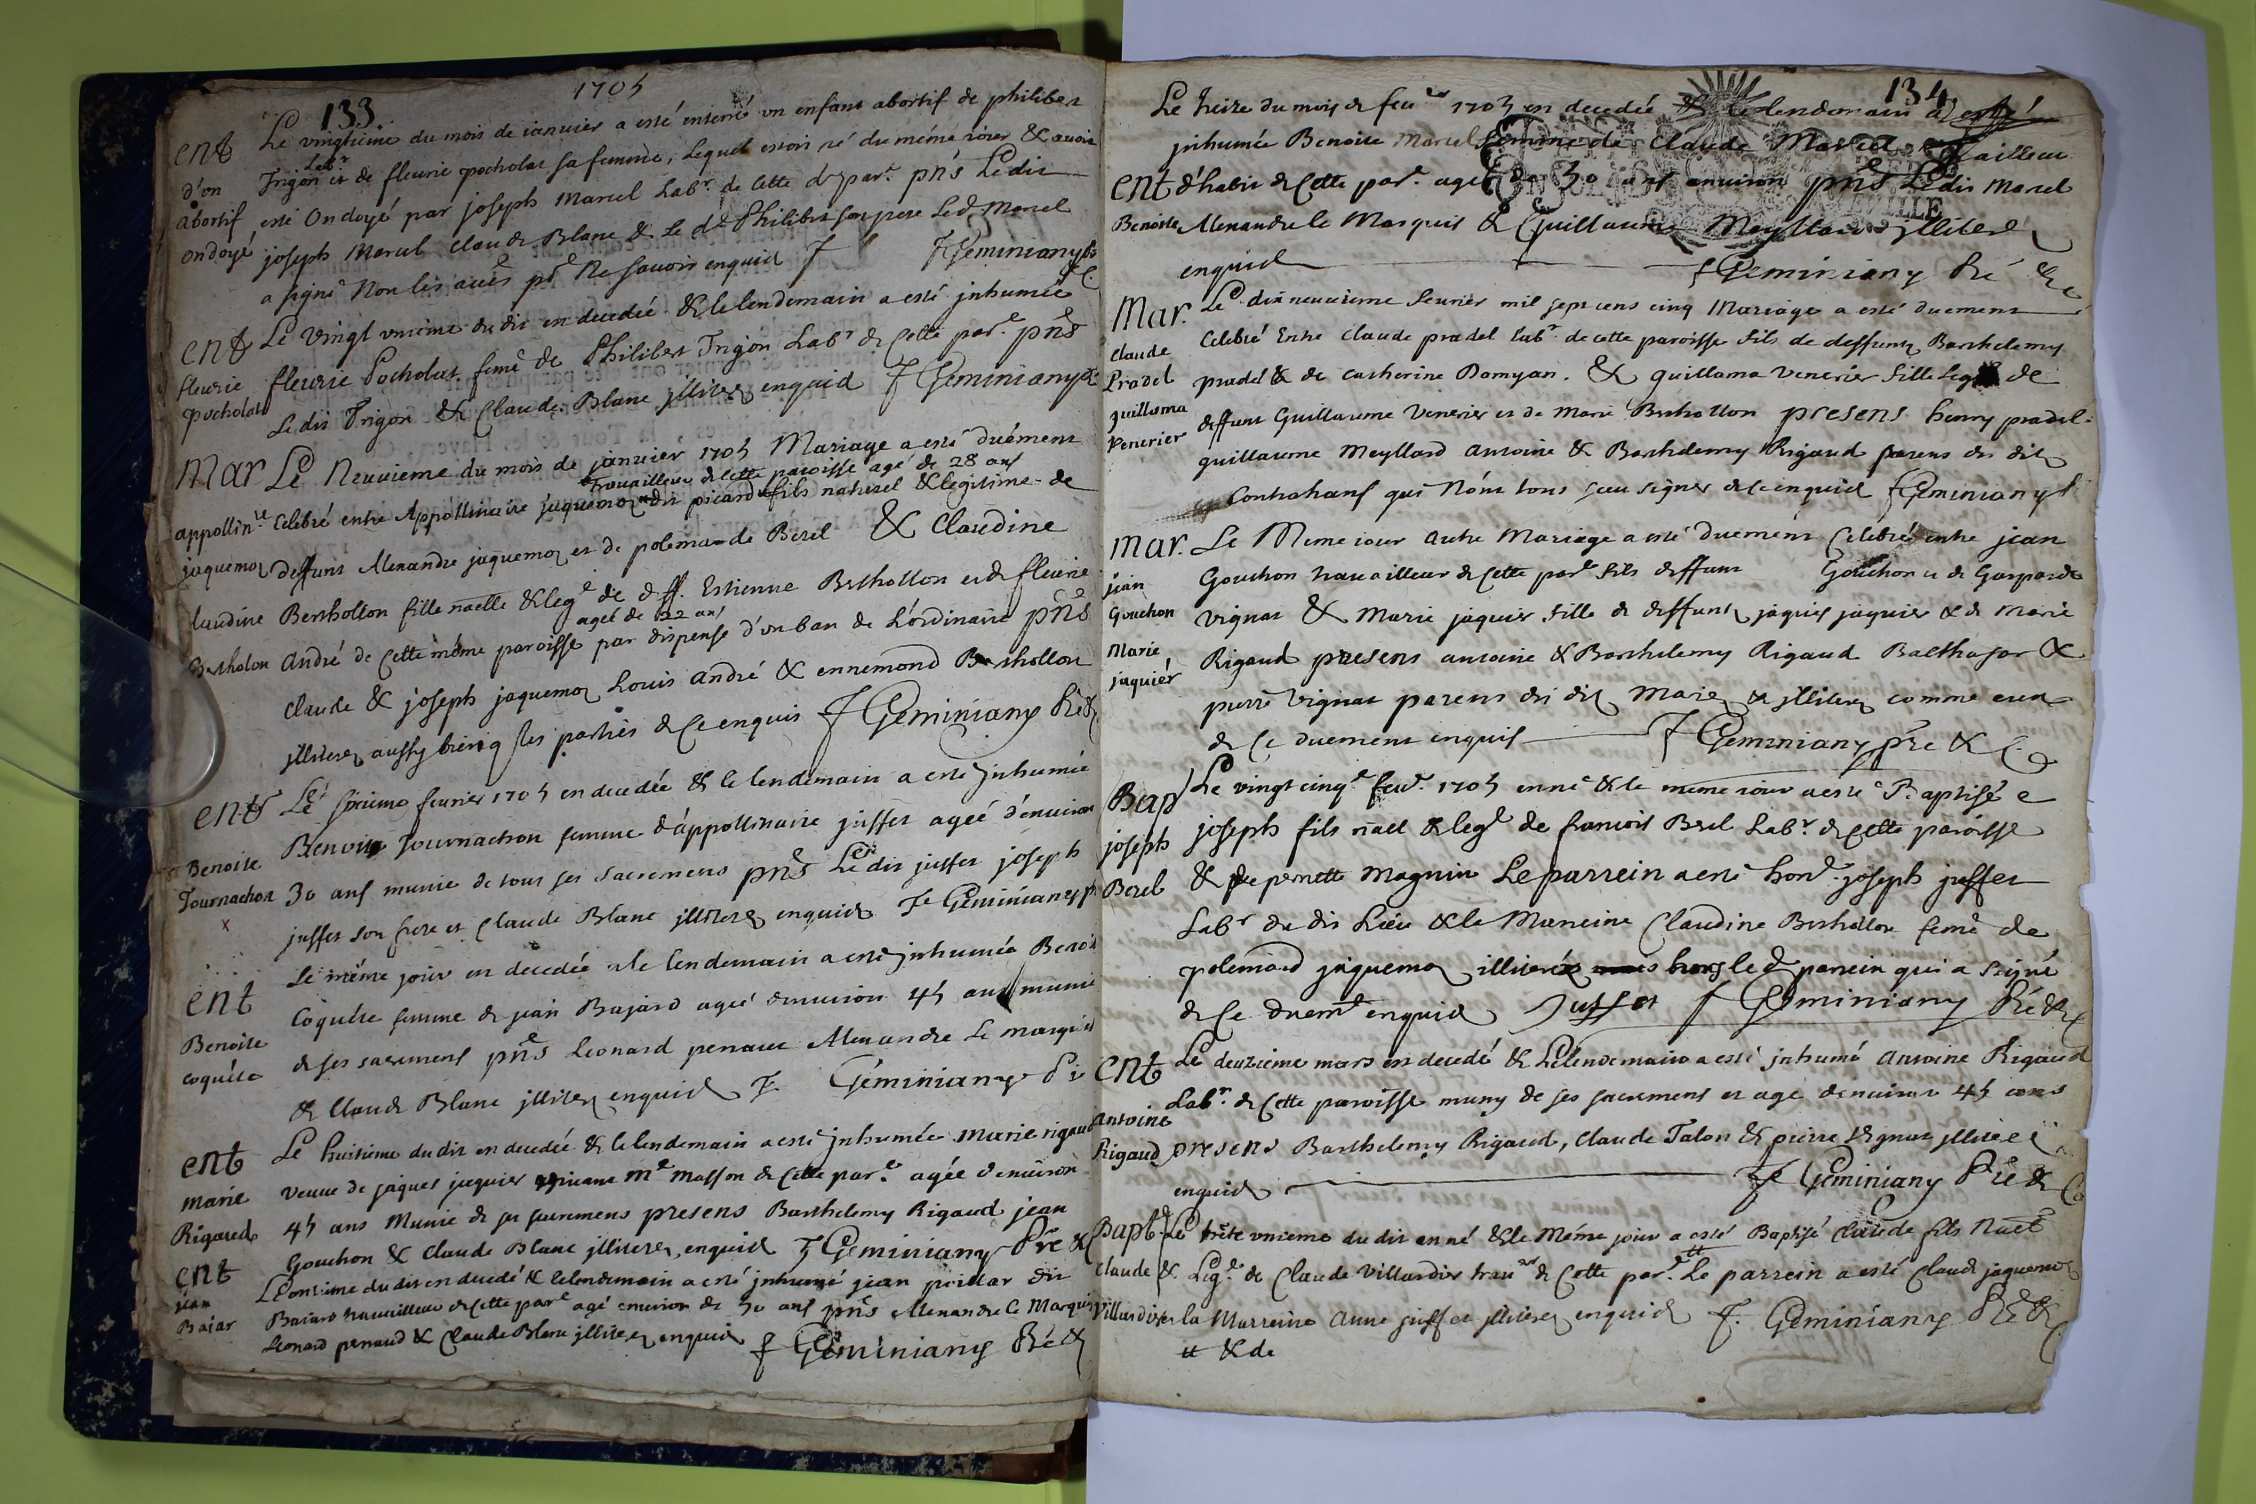 1705
133
ent
d'un
abortif
ondoyé
Le vingtieme du mois de ianuier a esté enterré vn enfant abortif de philibert
Trigon Labr et de fleurie pocholat sa femme, lequel estoit né du méme iour & auoit
esté Ondoyé par joseph Marcel Labr. de Cette de par. pñs Ledit
joseph Marcel Claude Blanc & le dt Philibert son pere Led. Marcel
a signé Non les autres pr Ne sauoir enquis F Geminiany
ent
fleurie
pocholat
Le Vingt vnieme du dit est decedée & le lendemain a esté jnhumée
fleurie Pocholat feme de Philibert Trigon Labr de Cette par.e pñs
Ledit Trigon & Claude Blanc jlliterez enquis F Geminiany
Mar
appollin.re
jaquemoz
laudine
Bertholon
Le Neuuieme du mois de januier 1705 Mariage a esté duément
trauailleur de Cette paroisse agé de 28 ans
Celebré entre Appollinaire jaquemoz dit picard fils naturel & legitime de
deffunt Alexandre jaquemoz et de polemande Berel & Claudine
Bertholton fille naelle & leg.e de deff. Estienne Bertholton et de fleurie
agéé de 22 ans
André de Cette méme paroisse par dispense d'vn ban de L'ordinaire pñs
Claude & joseph jaquemoz Louis André & ennemond Bertholton
jlliterez aussy bien q les parties de Ce enquis F Geminiany Pré &
ent
Benoite
Tournachon
x
Le septieme feurier 1705 est decedée & le lendemain a esté jnhumée
Benoite Tournachon femme d'appollinaire juffet agéé d'enuiron
30 ans munie de tous ses sacremens pñs Ledit juffet joseph
juffet son frere et Claude Blanc jlliterez enquis F Geminiany
ent
Benoite
coquéte
Le méme jour est decedée & le lendemain a esté jnhumée Benoit
Coquéte femme de jean Bajard agéé d'enuiron 45 ans munie
de ses sacremens pñs Leonard penaud Alexandre Le marquis
& Claude Blanc jlliterez enquis F. Géminiany Pr
ent
Marie
Rigaud
Le huitieme du dit est decedée & le lendemain a esté jnhumée Marie rigaud
veuue de jaques jaquier viuant Me Masson de Cette par.e agéé d'enuiron
45 ans Munie de ses sacremens presens Barthelemy Rigaud jean
Gouchon & Claude Blanc jlliterez enquis F Geminiany Pre &
ent
jéan
Bajar
L'onzieme du dit est decedé & le lendemain a esté jnhumé jean poitar dit
Baiard trauailleur de Cette par.e agé enuiron de 50 ans pñs Alexandre Le Marquis
Leonard penaud & Claude Blanc jlliterez enquis F Géminiany Pré &
134
Le treize du mois de feuer 1705 est decedée & le lendemain a esté
jnhumée Benoite Marcel femme de Claude Marcel Tailleur
ent
Benoite
d'habit de Cette par. agéé de 50 ans enuiron pñs Ledit Marcel
Alexandre le Marquis & Guillaume Meyllard jlliterez
enquis F Geminiany Pré &c
Mar.
Claude
Pradel
guillama
Venerier
Le dixneuuieme feurier mil sept cens cinq Mariage a esté duement
Celebré Entre Claude pradel Labr. de cette paroisse fils de deffunt Barthelemy
pradel & de Catherine Damyan. & guillama Venerier fille leg. de
deffunt Guillaume Venerier et de Marie Bertholton presens henry pradel
guillaume Meyllard Antoine & Barthelemy Rigaud parens des dits
Contrahans qui N'ont tous sceu signer de ce enquis F Geminiany
mar.
jean
Gouchon
Marie
jaquiér
Le Meme iour autre Mariage a esté Duement Celebré entre jean
Gouchon trauailleur de Cette par.e fils deffunt Gouchon et de Gasparde
Vignat & Marie jaquier fille de deffunt jaques jaquier & de Marie
Rigaud presens antoine & Barthelemy Rigaud Balthazar &
pierre Vignat parens des dits Mariez & jlliterez comme eux
de Ce duement enquis F Geminiany pre & C
Bap
joseph
Berel
Le vingt cinq.e feur. 1705 est né & le méme iour a esté Baptisé
joseph fils nael & leg.e de francois Berel Labr. de Cette paroisse
& de pernette Magnin Le parrein a esté hon. joseph juffet
Labr du dit Lieu & la Mareine Claudine Bertholton feme de
polemard jaquemoz illiteréz hors le d parrein qui a signé
de Ce duemt enquis Juffet F Geminiany Pré &c
ent
Antoine
Rigaud
Le deuzieme mars est decedé & le lendemain a esté jnhumé Antoine Rigaud
Labr. de Cette paroisse muny de ses sacremens et agé d'enuiron 45 ans
presens Barthelemy Rigaud, Claude Talon & pierre Vignat jlliterez
enquis F Geminiany Pré & C
Bapt
Claude
Villardier
Le trête vnieme du dit est né & le Méme jour a esté Baptisé Claude fils Nael
& Leg.e de Claude Villardier trau.er de Cette par.e Le parrein a esté Claude jaquemoz
la Marreine Anne juffet jlliterez enquis F. Géminiany Pré &
& de